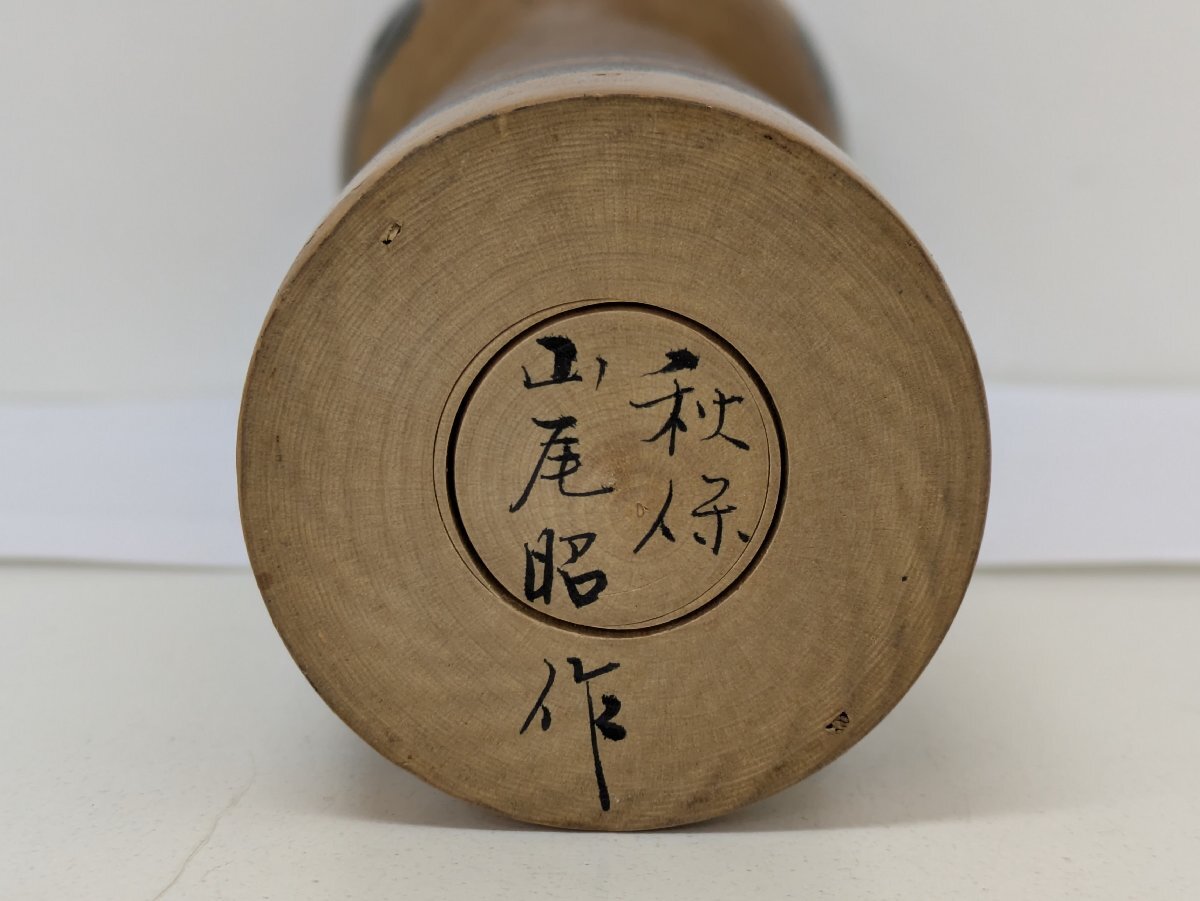 秋保
山尾昭作